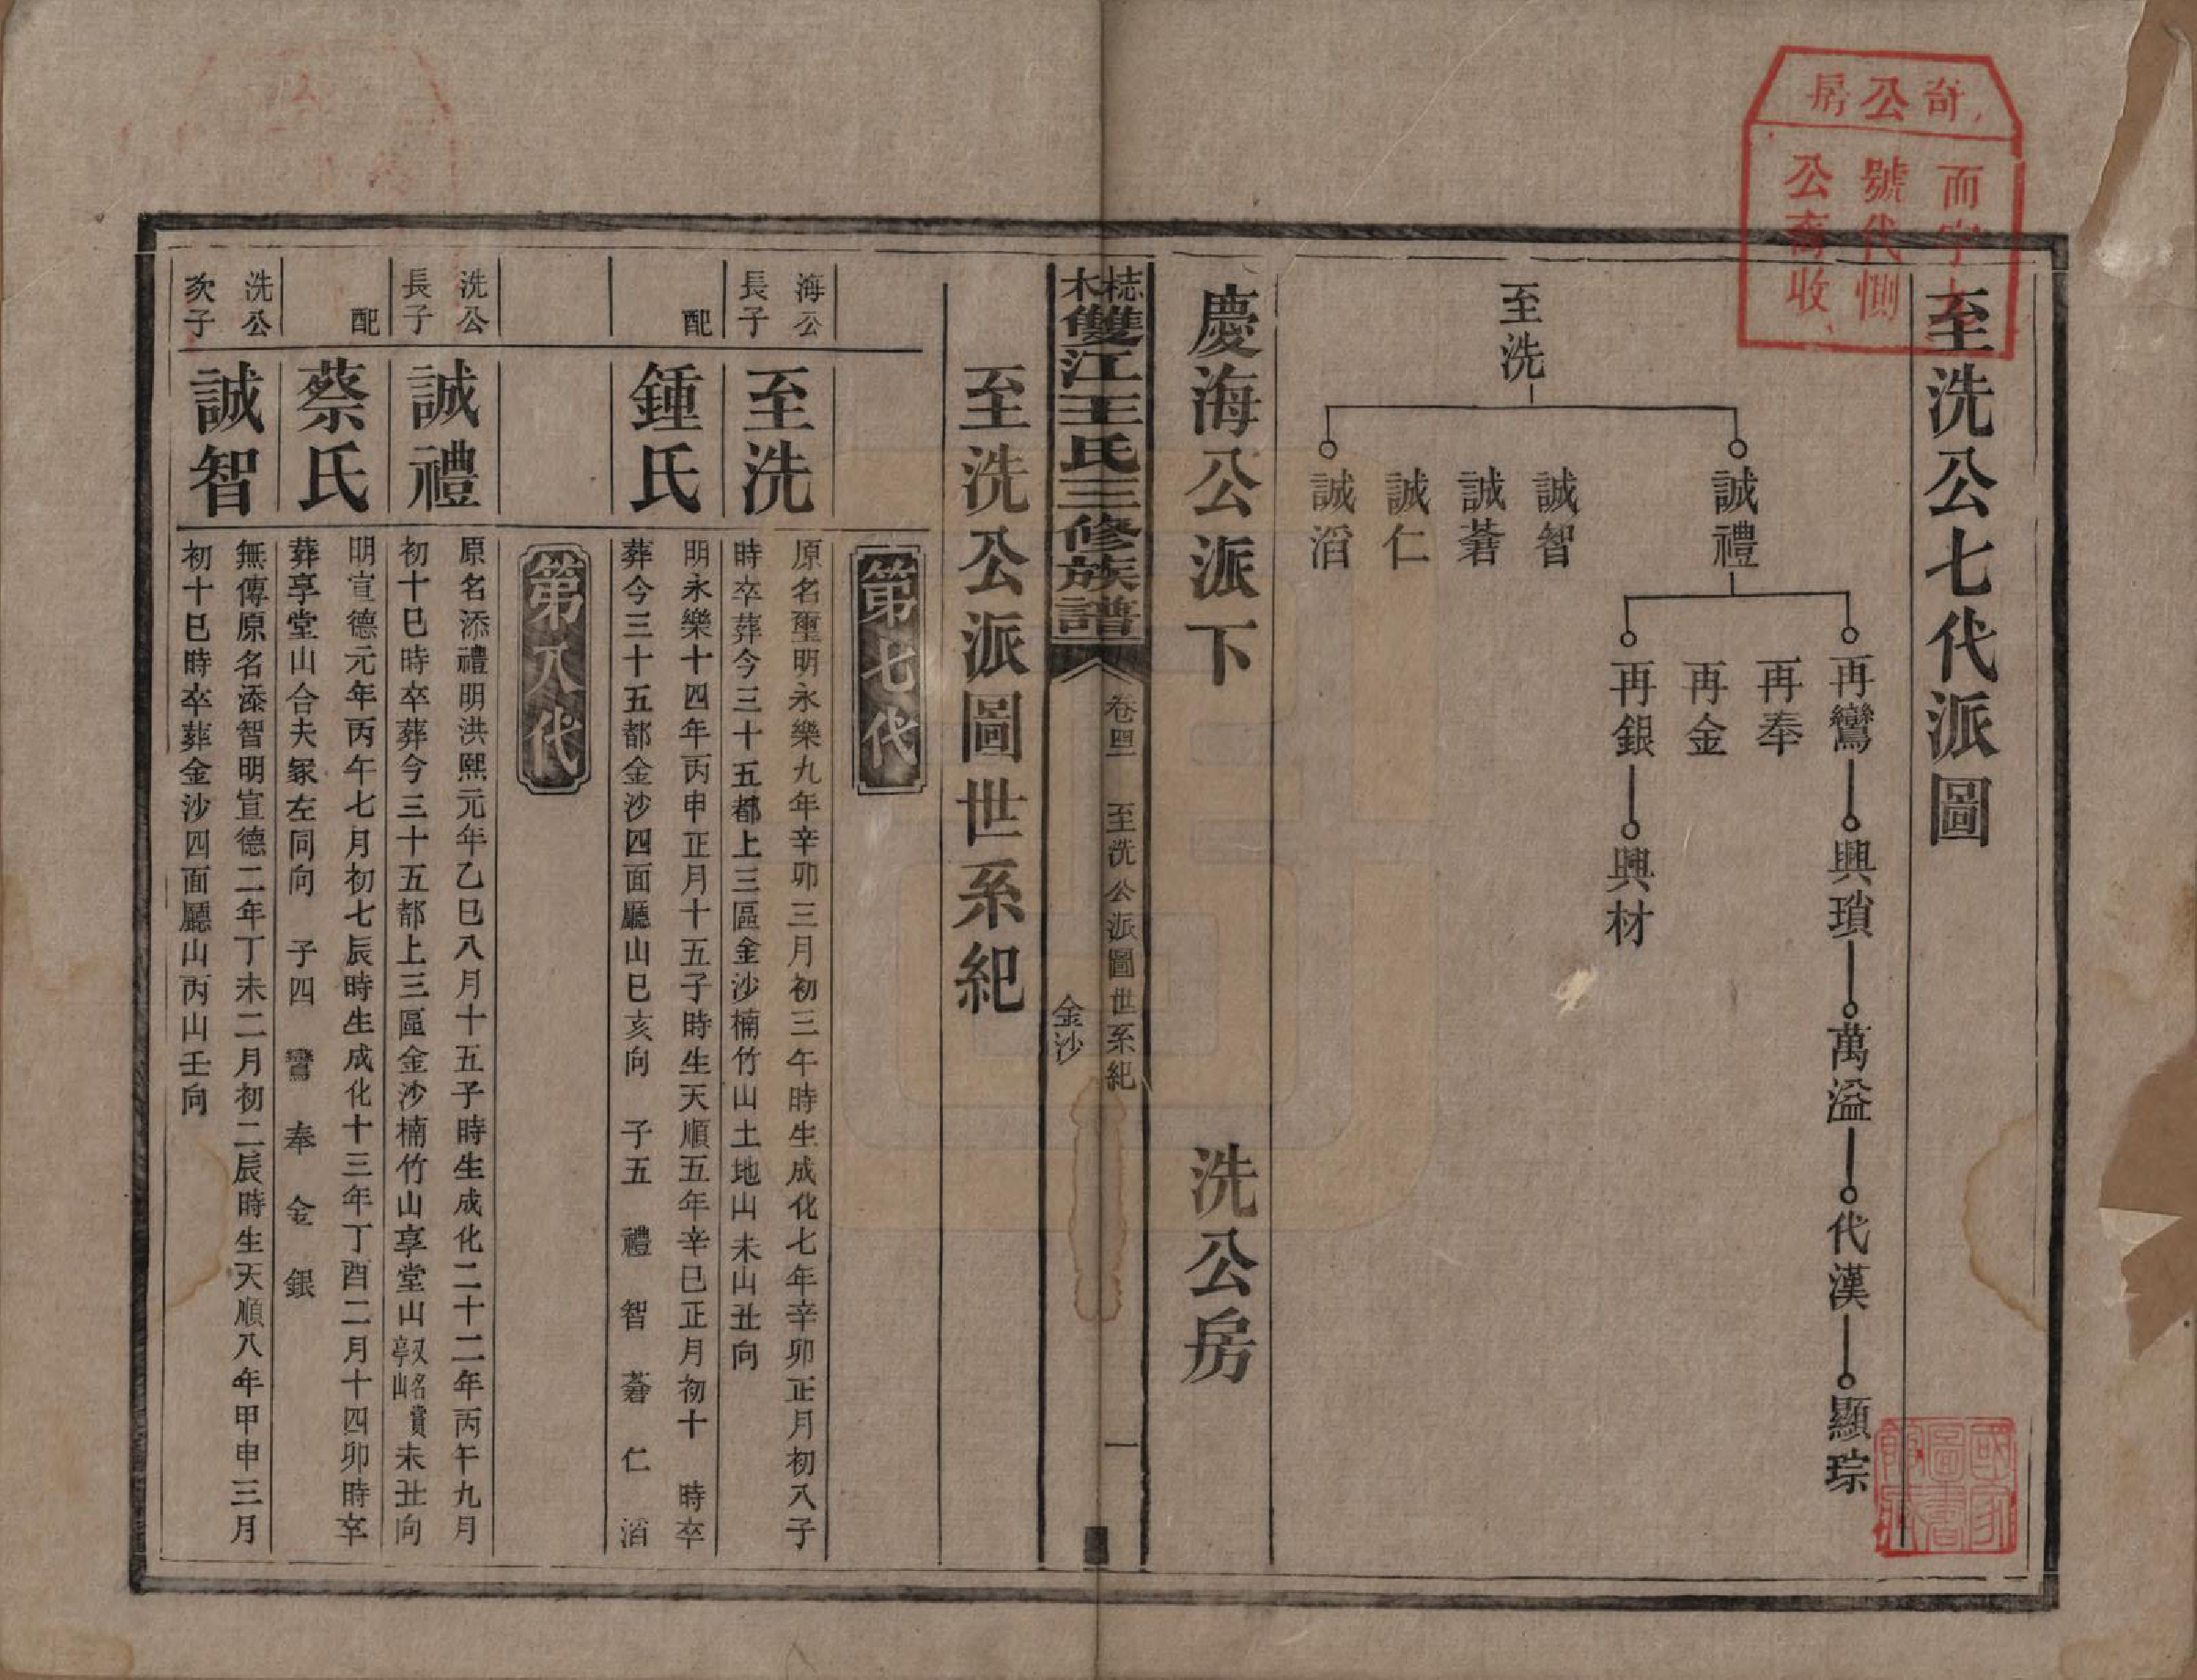 奇公房
而字
號代惻
公裔收
至洗公七代派圖
至洗
誠禮
誠智
誠蓍
誠仁
誠滔
再鸞
再奉
再金
再銀
興瑣
興材
萬溢
代漢
顯琮
國家圖書館藏
慶海公派下　洗公房
桛木雙江王氏三修族譜
卷四　至洗公派圖世系紀　一
金沙
至洗公派圖世系紀
第七代
海公長子
至洗
原名璽明永樂九年辛卯三月初三午時生成化七年辛卯正月初八子
時卒葬今三十五都上三區金沙楠竹山土地山未山丑向
配
鍾氏
明永樂十四年丙申正月十五子時生天順五年辛巳正月初十　時卒
葬今三十五都金沙四面廳山巳亥向　子五　禮　智　蓍　仁　滔
第八代
洗公長子
誠禮
原名添禮明洪熙元年乙巳八月十五子時生成化二十二年丙午九月
初十巳時卒葬今三十五都上三區金沙楠竹山享堂山又名賞亭山未丑向
配
蔡氏
明宣德元年丙午七月初七辰時生成化十三年丁酉二月十四卯時卒
葬享堂山合夫冢左同向　子四　鸞　奉　金　銀
洗公次子
誠智
無傳原名添智明宣德二年丁未二月初二辰時生天順八年甲申三月
初十巳時卒葬金沙四面廳山丙山壬向